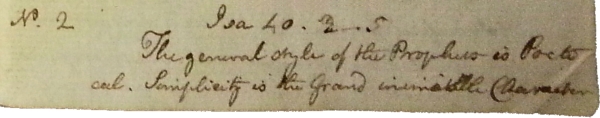 No. 2 Isa 40. 3-.5
The general style of the Prophets is Poeti
cal. Simplicity is the Grand inimitable Character